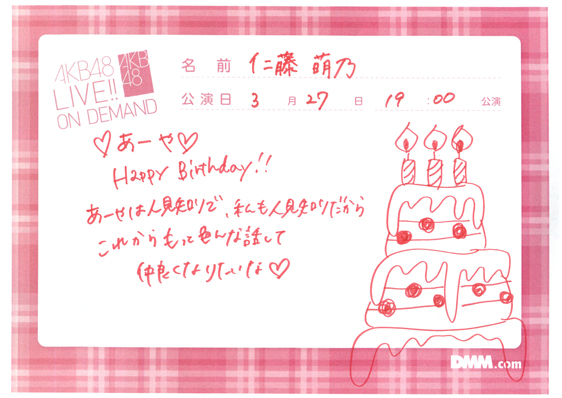 AKB48
LIVE!!
ON DEMAND
AKB
48
名前 仁藤 萌乃
公演日 3月27日 19:00 公演
♡あーや♡
Happy Birthday!!
あーやは人見知りで、私も人見知りだから
これからもっと色んな話して
仲良くなりたいな♡
DMM.com